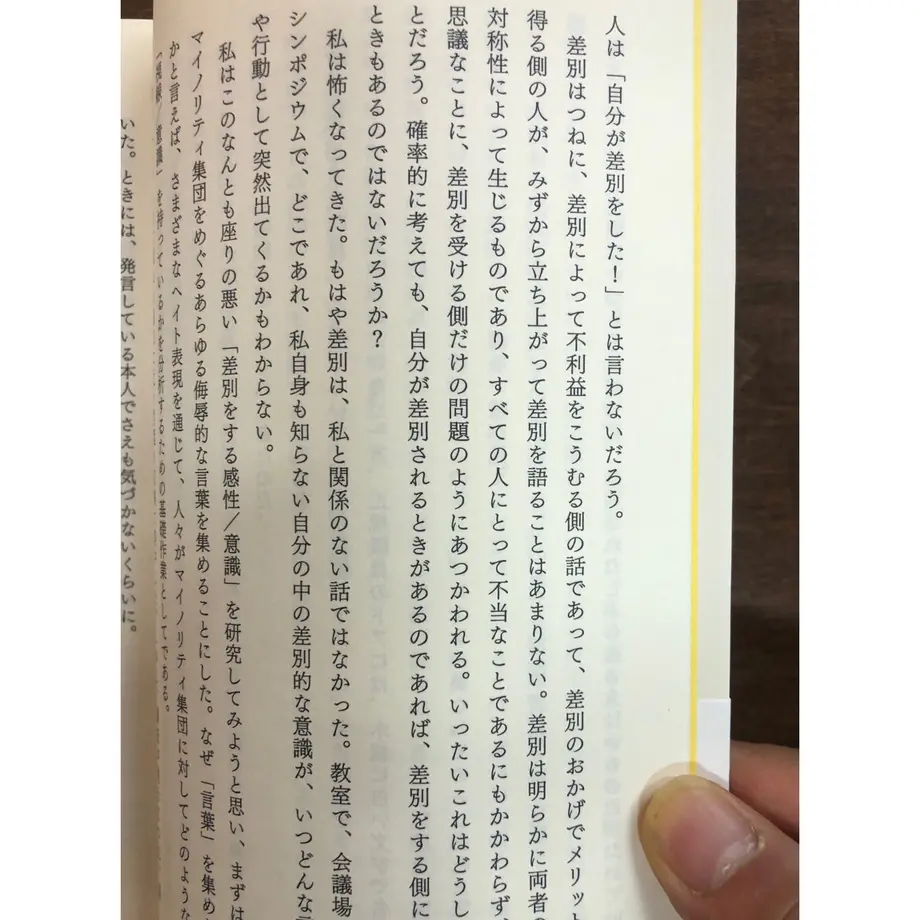 人は「自分が差別をした！」とは言わないだろう。
差別はつねに、差別によって不利益をこうむる側の話であって、差別のおかげでメリット
得る側の人が、みずから立ち上がって差別を語ることはあまりない。差別は明らかに両者の
対称性によって生じるものであり、すべての人にとって不当なことであるにもかかわらず、
思議なことに、差別を受ける側だけの問題のようにあつかわれる。いったいこれはどうし
とだろう。確率的に考えても、自分が差別されるときがあるのであれば、差別をする側に
ときもあるのではないだろうか？
私は怖くなってきた。もはや差別は、私と関係のない話ではなかった。教室で、会議場
シンポジウムで、どこであれ、私自身も知らない自分の中の差別的な意識が、いつどんな言
や行動として突然出てくるかもわからない。
私はこのなんとも座りの悪い「差別をする感性／意識」を研究してみようと思い、まずは
マイノリティ集団をめぐるあらゆる侮辱的な言葉を集めることにした。なぜ「言葉」を集め
かと言えば、さまざまなヘイト表現を通じて、人々がマイノリティ集団に対してどのような
「視線／意識」を持っているかを分析するための基礎作業としてである。
いた。ときには、発言している本人でさえも気づかないくらいに。